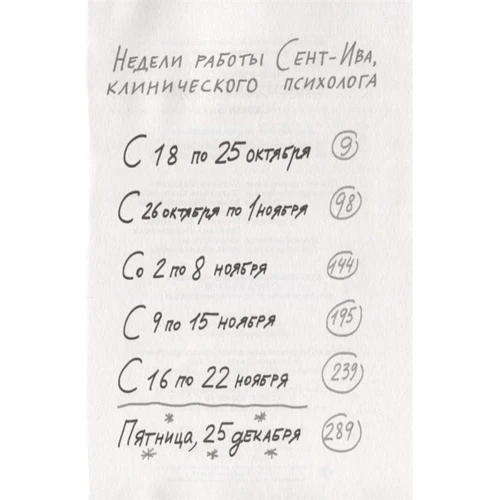 Недели работы Сент-Ива,
клинического психолога
С 18 по 25 октября 9
С 26 октября по 1 ноября 98
Со 2 по 8 ноября 144
С 9 по 15 ноября 195
С 16 по 22 ноября 239
Пятница, 25 декабря 289